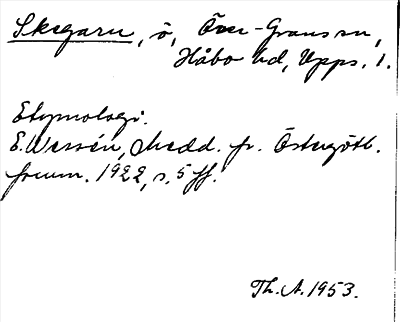 Skegaru, ö, Över-Grans sn,
Håbo hd, Upps. l.
Etymologi.
E. Wessén, Medd. fr. Östergötl.
fornm. 1922, s. 5 ff.
Th. A. 1953.